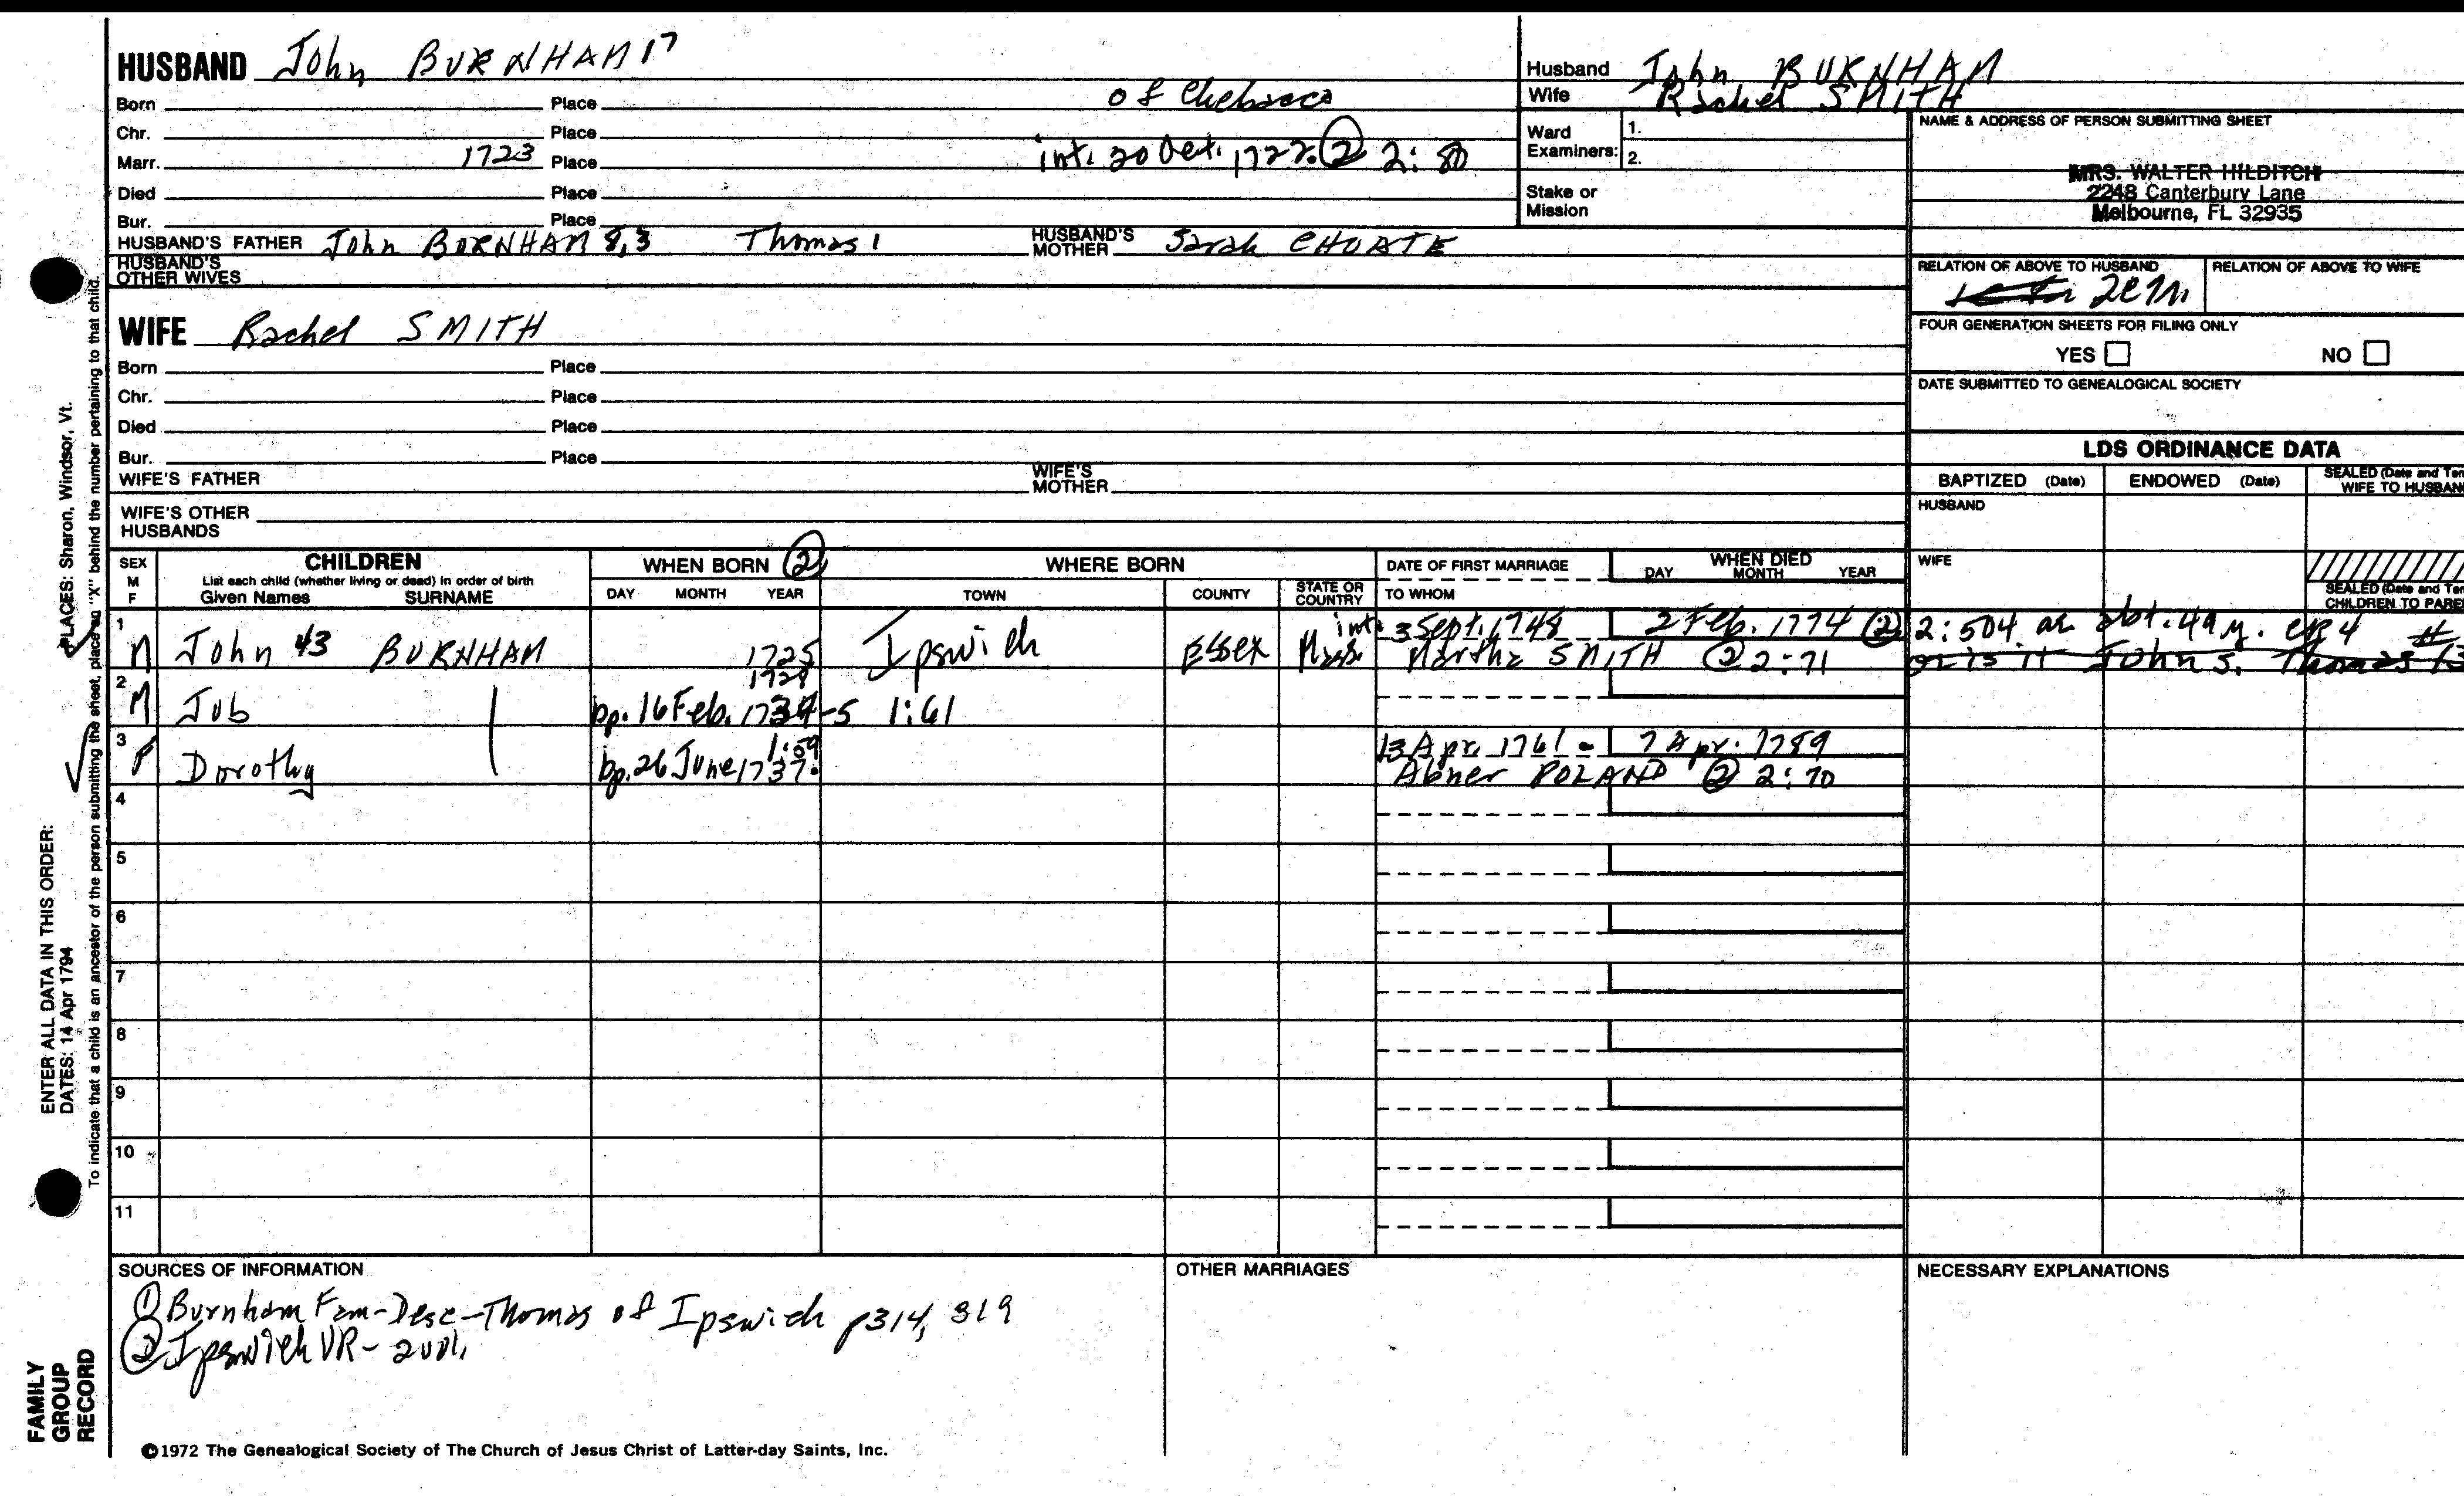 HUSBAND John BURNHAM 17
Born Place of Chebacco
Chr. Place
Marr. 1723 Place int. 20 Oct. 1722. ② 2: 80
Died Place
Bur. Place
HUSBAND'S FATHER John BURNHAM 8,3 Thomas 1 HUSBAND'S MOTHER Sarah CHOATE
HUSBAND'S OTHER WIVES
WIFE Rachel SMITH
Born Place
Chr. Place
Died Place
Bur. Place
WIFE'S FATHER WIFE'S MOTHER
WIFE'S OTHER HUSBANDS
Husband John BURNHAM
Wife Rachel SMITH
Ward Examiners: 1.
2.
Stake or Mission
NAME & ADDRESS OF PERSON SUBMITTING SHEET
MRS. WALTER HILDITCH
2248 Canterbury Lane
Melbourne, FL 32935
RELATION OF ABOVE TO HUSBAND RELATION OF ABOVE TO WIFE
FOUR GENERATION SHEETS FOR FILING ONLY
YES NO
DATE SUBMITTED TO GENEALOGICAL SOCIETY
LDS ORDINANCE DATA
BAPTIZED (Date) ENDOWED (Date) SEALED (Date and Tem
WIFE TO HUSBAN
HUSBAND
WIFE
SEALED (Date and Tem
CHILDREN TO PARE
SEX M F CHILDREN WHEN BORN ② WHERE BORN DATE OF FIRST MARRIAGE WHEN DIED
List each child (whether living or dead) in order of birth
Given Names SURNAME DAY MONTH YEAR TOWN COUNTY STATE OR COUNTRY TO WHOM DAY MONTH YEAR
1 int. 3 Sept. 1748 2 Feb. 1774 ② 2:504 ae abt. 49 y. CR4
M John 43 BURNHAM 1725 Ipswich Essex Mass. Martha SMITH ② 2:71
2 1728
M Job bp. 16 Feb. 1734-5 1:61
3 1:59 13 Apr. 1761 - 7 Apr. 1789
F Dorothy bp. 26 June 1737. Abner POLAND ② 2:70
4
5
6
7
8
9
10
11
SOURCES OF INFORMATION
① Burnham Fam-Desc-Thomas of Ipswich p314, 319
② Ipswich VR-
OTHER MARRIAGES
NECESSARY EXPLANATIONS
©1972 The Genealogical Society of The Church of Jesus Christ of Latter-day Saints, Inc.
FAMILY GROUP RECORD
ENTER ALL DATA IN THIS ORDER:
DATES: 14 Apr 1794
PLACES: Sharon, Windsor, Vt.
To indicate that a child is an ancestor of the person submitting the sheet, place an "X" behind the number pertaining to that child.